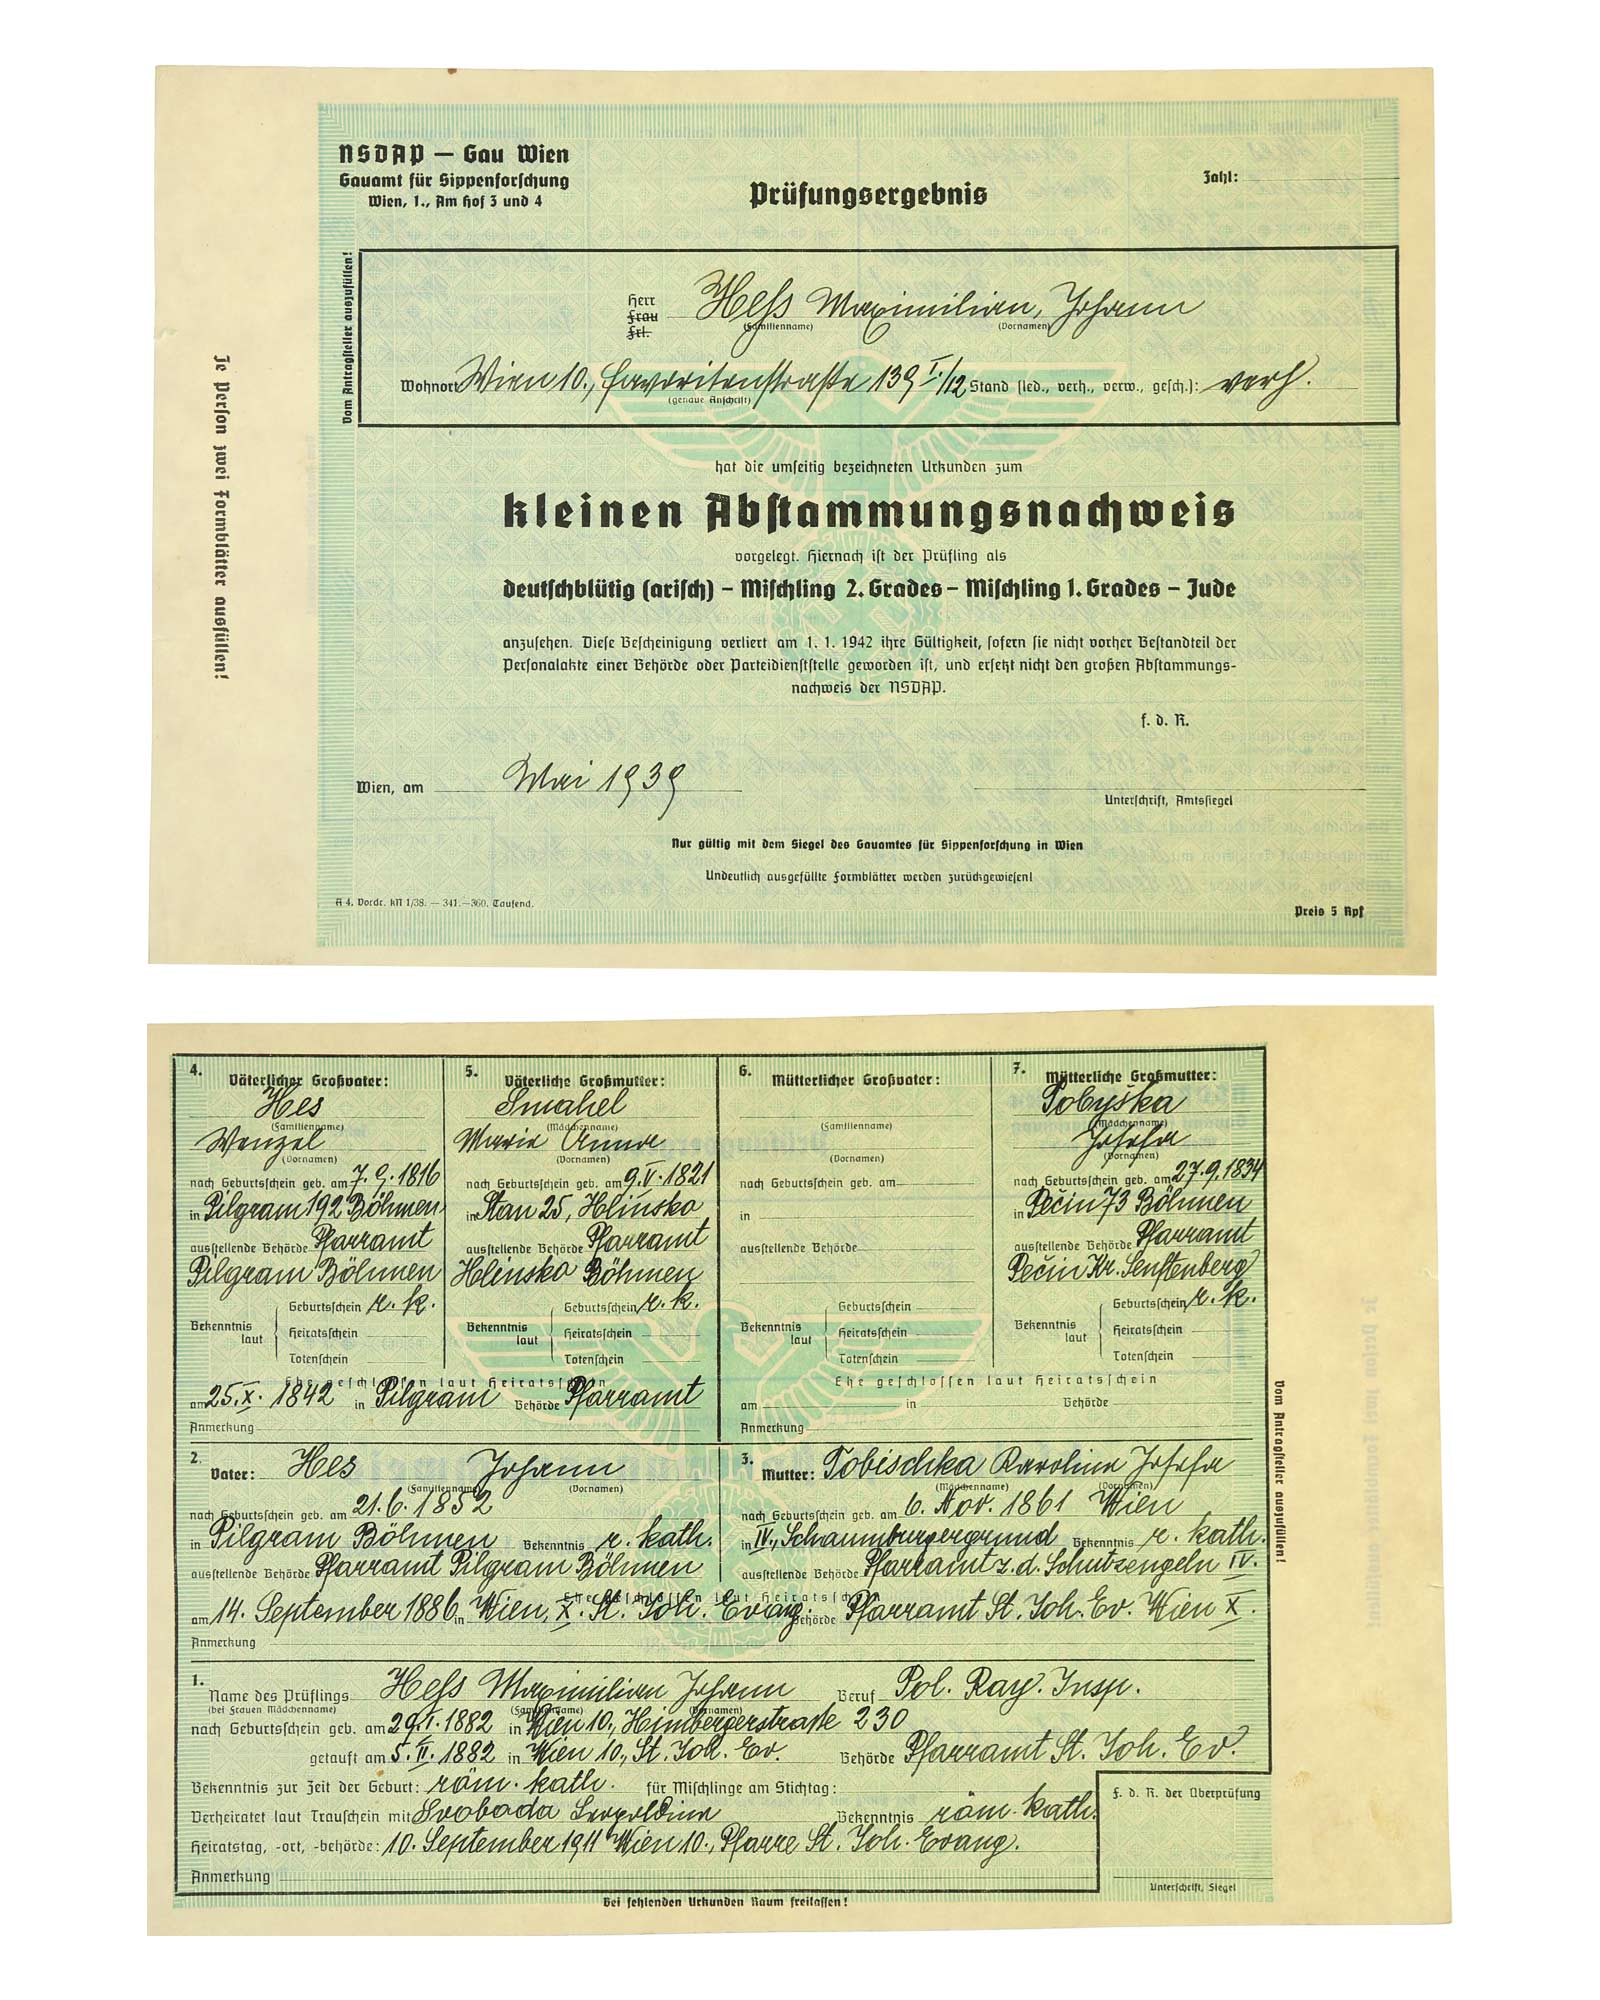 NSDAP — Gau Wien
Gauamt für Sippenforschung
Wien, 1., Am Hof 3 und 4
Prüfungsergebnis
Zahl:
Je Person zwei Formblätter ausfüllen!
Vom Antragsteller auszufüllen!
Herr
Frau
Frl.
Heſs Maximilian, Johann
(Familienname) (Vornamen)
Wohnort Wien 10., Favoritenstraße 139 I./12 Stand (led., verh., verw., gesch.): verh.
(genaue Anschrift)
hat die umseitig bezeichneten Urkunden zum
kleinen Abstammungsnachweis
vorgelegt. Hiernach ist der Prüfling als
deutschblütig (arisch) – Mischling 2. Grades – Mischling 1. Grades – Jude
anzusehen. Diese Bescheinigung verliert am 1. 1. 1942 ihre Gültigkeit, sofern sie nicht vorher Bestandteil der
Personalakte einer Behörde oder Parteidienststelle geworden ist, und ersetzt nicht den großen Abstammungs-
nachweis der NSDAP.
f. d. R.
Wien, am Mai 1939
Unterschrift, Amtssiegel
Nur gültig mit dem Siegel des Gauamtes für Sippenforschung in Wien
Undeutlich ausgefüllte Formblätter werden zurückgewiesen!
A 4. Vordr. kN 1/38. — 341.—360. Tausend.
Preis 5 Rpf
4. Väterlicher Großvater:
Hes
(Familienname)
Wenzel
(Vornamen)
nach Geburtschein geb. am 7. 9. 1816
in Pilgram 192 Böhmen
ausstellende Behörde Pfarramt
Pilgram Böhmen
Bekenntnis laut
Geburtsschein r. k.
Heiratsschein
Totenschein
5. Väterliche Großmutter:
Smahel
(Mädchenname)
Marie Anna
(Vornamen)
nach Geburtschein geb. am 9. V. 1821
in Stan 25, Hlinsko
ausstellende Behörde Pfarramt
Hlinsko Böhmen
Bekenntnis laut
Geburtsschein r. k.
Heiratsschein
Totenschein
Ehe geschlossen laut Heiratsschein
am 25. X. 1842 in Pilgram Behörde Pfarramt
Anmerkung
6. Mütterlicher Großvater:
(Familienname)
(Vornamen)
nach Geburtschein geb. am
in
ausstellende Behörde
Bekenntnis laut
Geburtsschein
Heiratsschein
Totenschein
7. Mütterliche Großmutter:
Tobyška
(Mädchenname)
Josefa
(Vornamen)
nach Geburtschein geb. am 27. 9. 1834
in Pečin 73 Böhmen
ausstellende Behörde Pfarramt
Pečin Kr. Senftenberg
Bekenntnis laut
Geburtsschein r. k.
Heiratsschein
Totenschein
Ehe geschlossen laut Heiratsschein
am in Behörde
Anmerkung
2. Vater: Hes Johann
(Familienname) (Vornamen)
nach Geburtschein geb. am 21. 6. 1852
in Pilgram Böhmen Bekenntnis r. kath.
ausstellende Behörde Pfarramt Pilgram Böhmen
3. Mutter: Tobischka Karolina Josefa
(Mädchenname) (Vornamen)
nach Geburtschein geb. am 6. Nov. 1861 Wien
in IV., Schaumburgergrund Bekenntnis r. kath.
ausstellende Behörde Pfarramt z. d. Schutzengeln IV.
Ehe geschlossen laut Heiratsschein
am 14. September 1886 in Wien, X. St. Joh. Evang. Behörde Pfarramt St. Joh. Ev. Wien X.
Anmerkung
1. Name des Prüflings Heſs Maximilian Johann Beruf Pol. Ray. Insp.
(bei Frauen Mädchenname) (Familienname) (Vornamen)
nach Geburtschein geb. am 29. I. 1882 in Wien 10., Himbergerstraße 230
getauft am 5. II. 1882 in Wien 10., St. Joh. Ev. Behörde Pfarramt St. Joh. Ev.
Bekenntnis zur Zeit der Geburt: röm. kath. für Mischlinge am Stichtag:
Verheiratet laut Trauschein mit Svoboda Leopoldine Bekenntnis röm. kath.
Heiratstag, -ort, -behörde: 10. September 1911 Wien 10., Pfarre St. Joh. Evang.
Anmerkung
f. d. R. der Überprüfung
Unterschrift, Siegel
Bei fehlenden Urkunden Raum freilassen!
Vom Antragsteller auszufüllen!